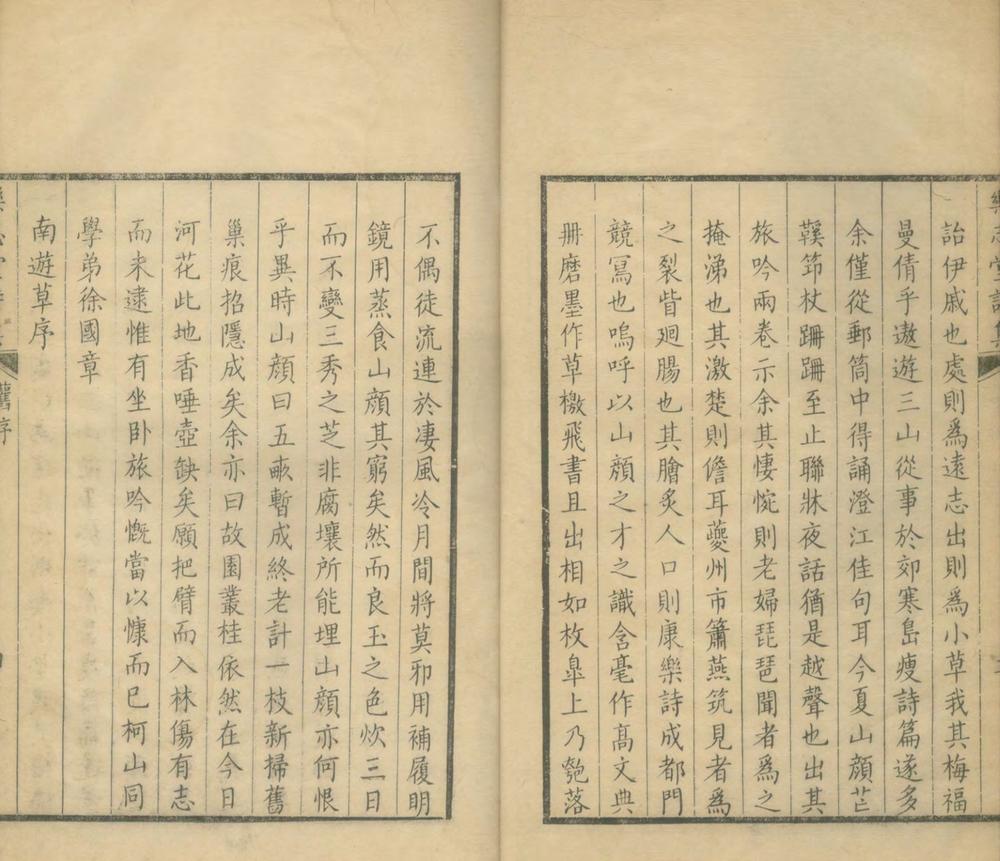 詒伊戚也處則爲遠志出則爲小草我其梅福
曼倩乎遨遊三山從事於郊寒島瘦詩篇遂多
余僅從郵筒中得誦澄江佳句耳今夏山顏芒
鞵笻杖跚跚至止聯牀夜話猶是越聲也出其
旅吟兩卷示余其悽惋則老婦琵琶聞者爲之
掩涕也其激楚則儋耳夔州市簫燕筑見者爲
之裂眥廻腸也其膾炙人口則康樂詩成都門
競冩也嗚呼以山顏之才之識含毫作高文典
冊磨墨作草檄飛書且出相如枚臯上乃匏落
不偶徒流連於凄風冷月間將莫邪用補履明
鏡用蒸食山顏其窮矣然而良玉之色炊三日
而不變三秀之芝非腐壤所能埋山顏亦何恨
乎異時山顏曰五畝暫成終老計一枝新掃舊
巢痕招隱成矣余亦曰故園叢桂依然在今日
河花此地香唾壺缺矣願把臂而入林傷有志
而未逮惟有坐卧旅吟慨當以慷而已柯山同
學弟徐國章
南遊草序
舊序